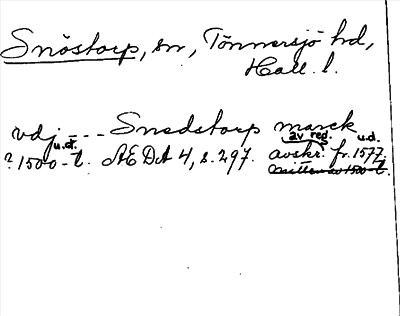 Snöstorp, sn, Tönnersjö hd,
Hall. l.
vdj --- Snedstorp marck
u.d. av reg. u.d.
? 1500-t. AEDA 4, s. 297. avskr. fr. 1577.
mitten av 1500-t.